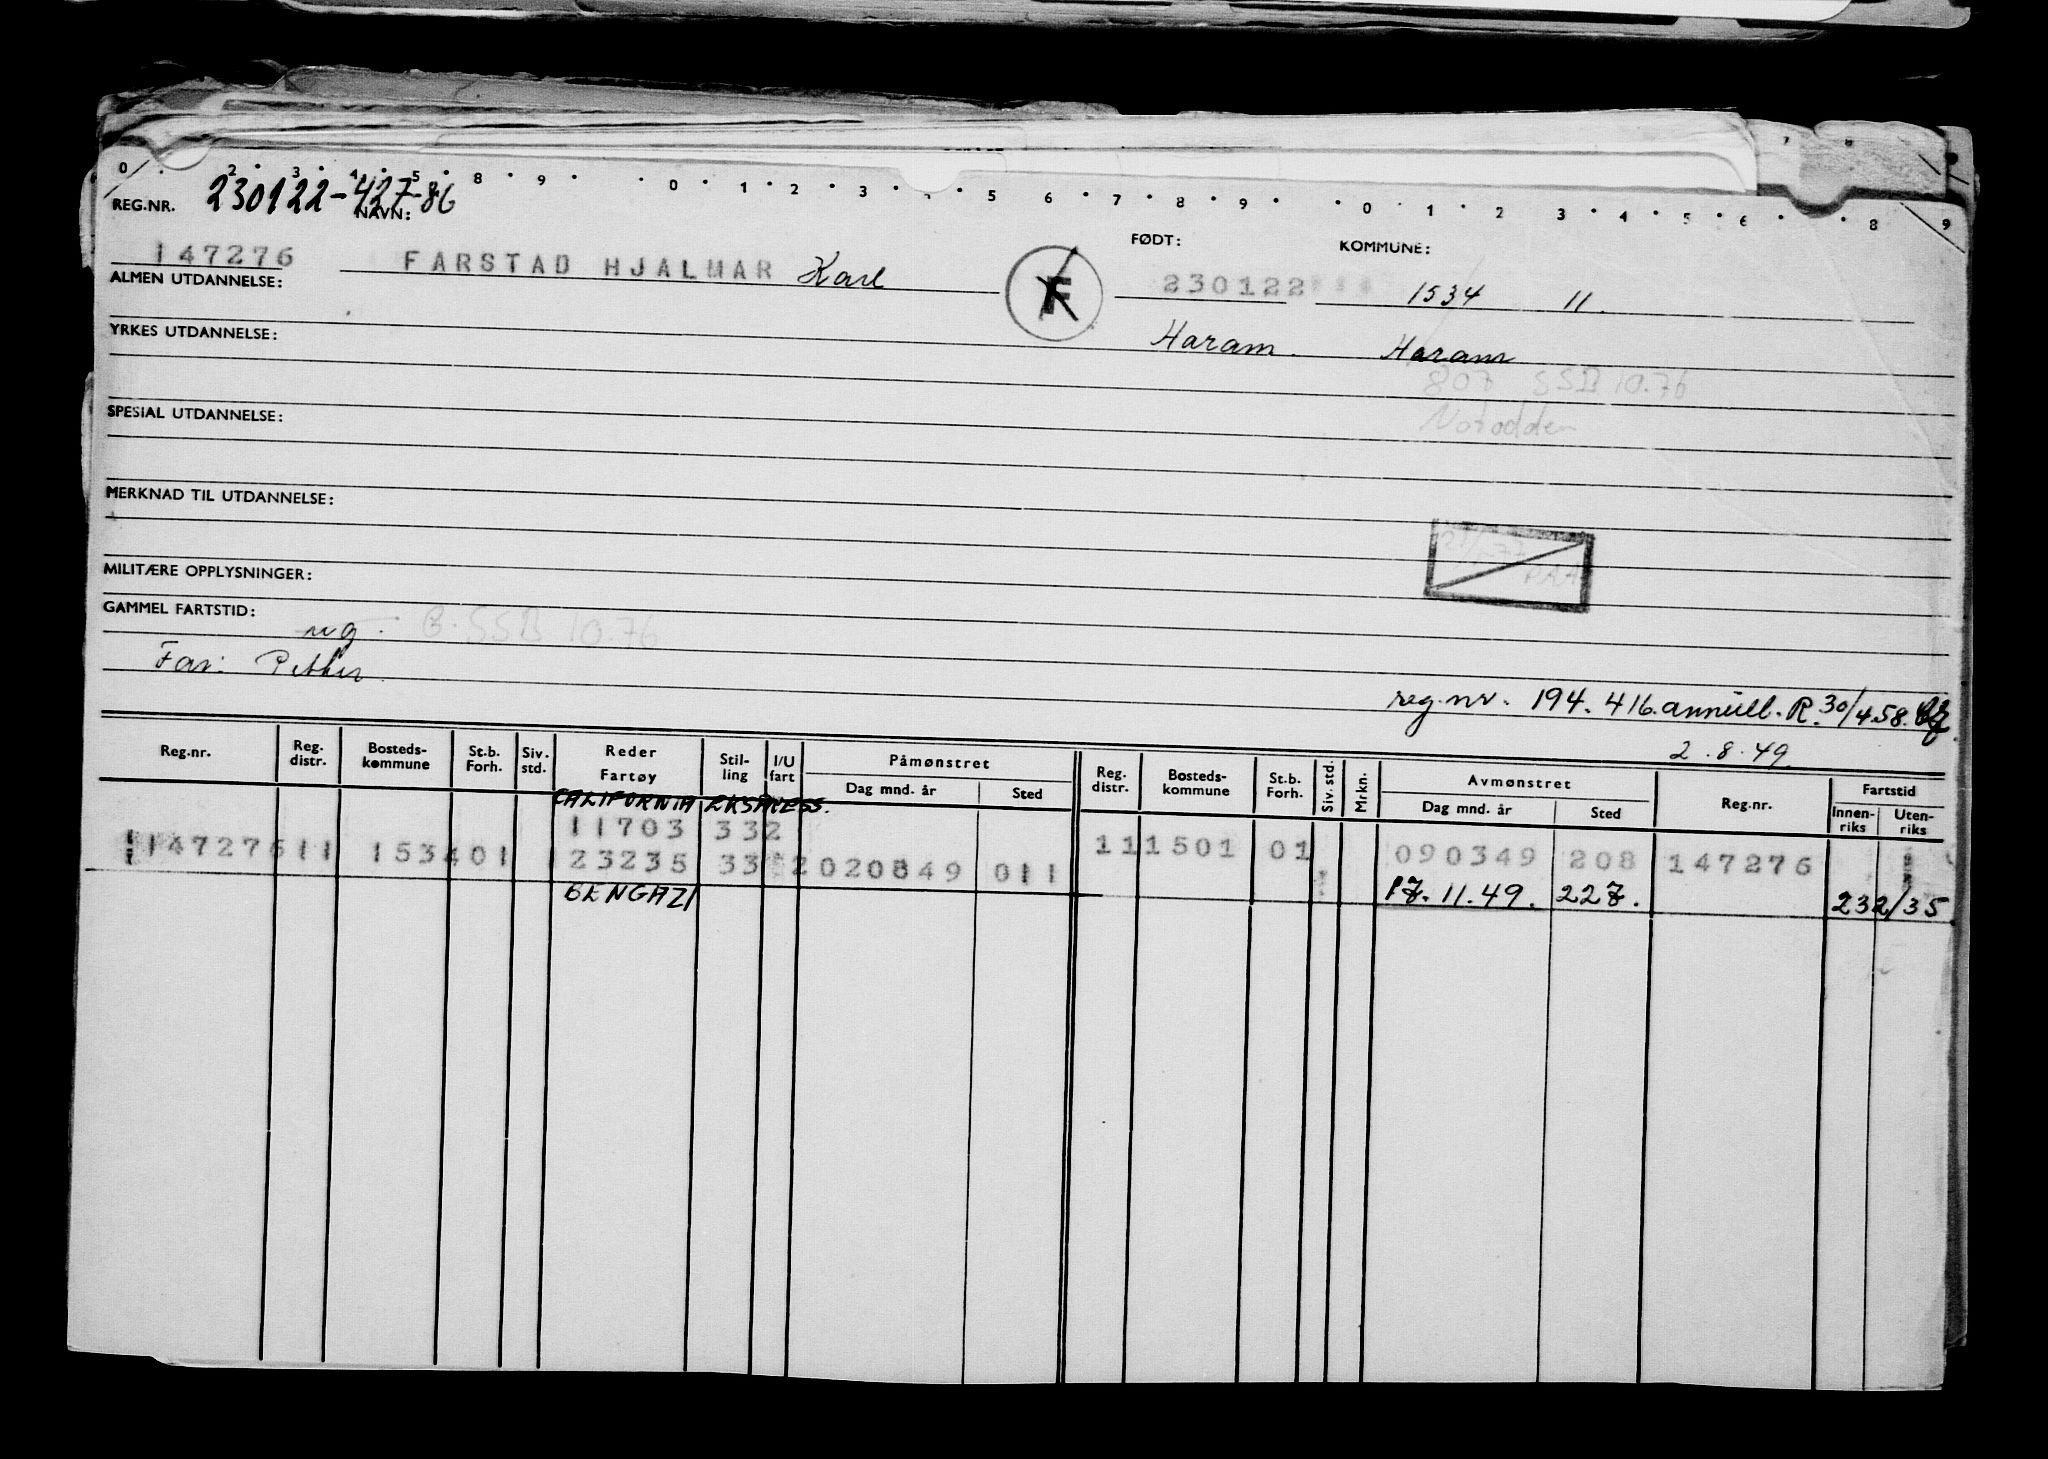 0 2 3 4 5 8 9 0 1 2 3 5 6 7 8 9 0 1 2 3 4 5 6 8 9
7 8
REG.NR. 230122-427-86
NAVN: FØDT: KOMMUNE:
147276 FARSTAD HJALMAR Karl F 230122 1534 11.
ALMEN UTDANNELSE:
Haram. Haram
YRKES UTDANNELSE:
807 SSB 10.76
Notodden
SPESIAL UTDANNELSE:
MERKNAD TIL UTDANNELSE:
MILITÆRE OPPLYSNINGER:
GAMMEL FARTSTID:
ug. B. SSB 10.76
Far: Petter
reg.nr. 194.416 annull. R. 30/4.58.
2.8.49.
Reg.nr. Reg. distr. Bosteds-kommune St.b. Forh. Siv. std. Reder Fartøy Stil-ling I/U fart Påmønstret Dag mnd. år Sted Reg. distr. Bosteds-kommune St.b. Forh. Siv. std. Mrkn. Avmønstret Dag mnd. år Sted Reg.nr. Fartstid Innen-riks Uten-riks
CALIFORNIA EKSPRESS.
11703 332
111501 01 090349 208 147276
147276 11 1534 01 23235 33 2 020849 011
BENGAZI 17. 11.49. 227. 232/35